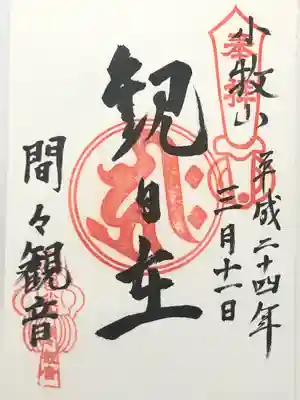 奉拝
小牧山
平成二十四年
三月十一日
観自在
間々観音